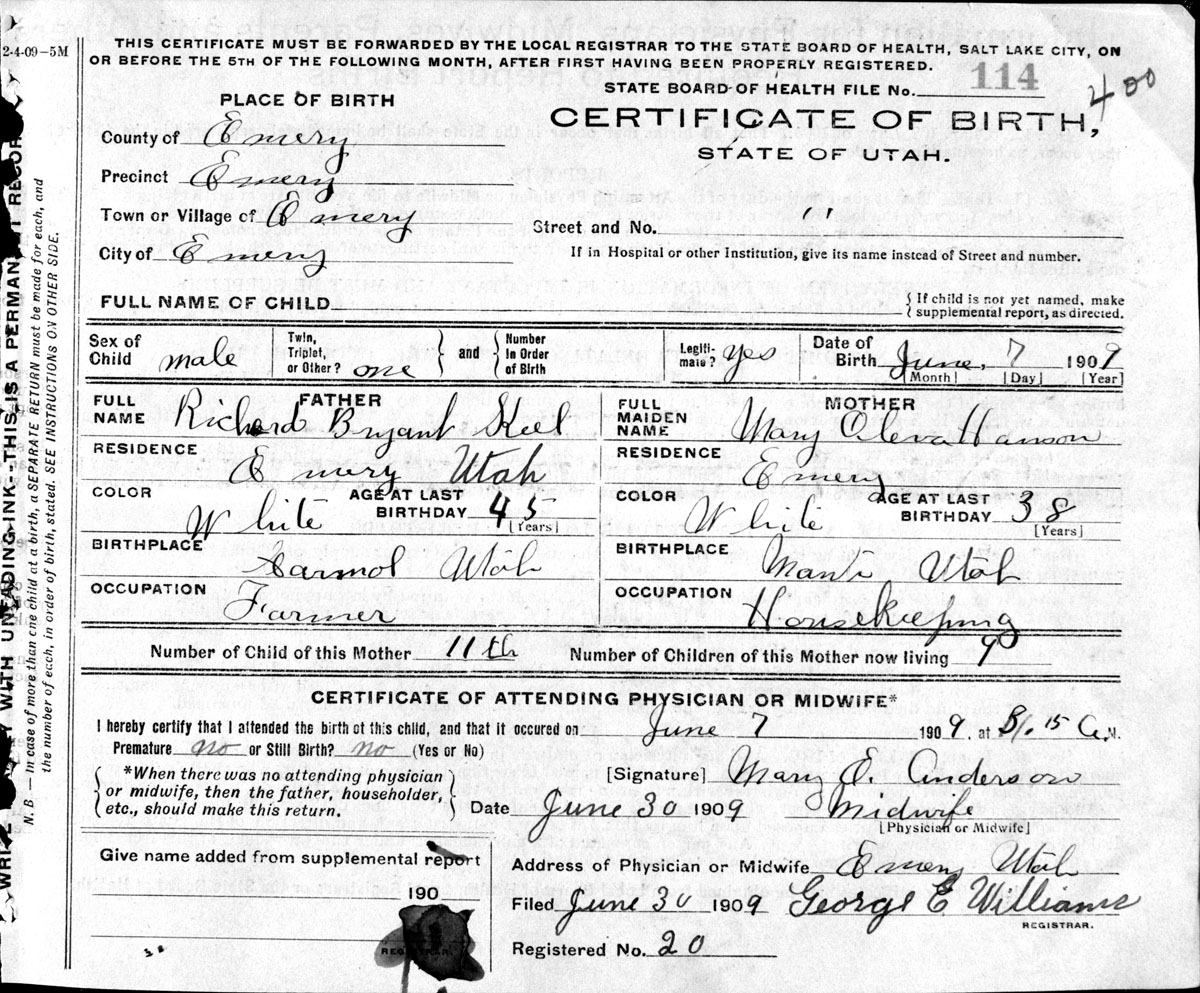 2-4-09-5M
THIS CERTIFICATE MUST BE FORWARDED BY THE LOCAL REGISTRAR TO THE STATE BOARD OF HEALTH, SALT LAKE CITY, ON
OR BEFORE THE 5TH OF THE FOLLOWING MONTH, AFTER FIRST HAVING BEEN PROPERLY REGISTERED.
STATE BOARD OF HEALTH FILE No. 114
400
PLACE OF BIRTH
CERTIFICATE OF BIRTH,
STATE OF UTAH.
County of Emery
Precinct Emery
Town or Village of Emery
Street and No. "
City of Emery
If in Hospital or other Institution, give its name instead of Street and number.
FULL NAME OF CHILD
{ If child is not yet named, make
supplemental report, as directed.
Sex of Child male
Twin, Triplet, or Other? one } and { Number In Order of Birth
Legiti-mate? yes
Date of Birth June, 7 1909
[Month] [Day] [Year]
FATHER
FULL NAME Richard Bryant Keel
RESIDENCE Emery Utah
COLOR White AGE AT LAST BIRTHDAY 45 [Years]
BIRTHPLACE Utah
OCCUPATION Farmer
MOTHER
FULL MAIDEN NAME Mary Oleva Hanson
RESIDENCE Emery
COLOR White AGE AT LAST BIRTHDAY 38 [Years]
BIRTHPLACE Manti Utah
OCCUPATION Housekeeping
Number of Child of this Mother 11th Number of Children of this Mother now living 9
CERTIFICATE OF ATTENDING PHYSICIAN OR MIDWIFE*
I hereby certify that I attended the birth of this child, and that it occured on June 7 1909, at 8/.15 A.M.
Premature no or Still Birth? no (Yes or No)
{ *When there was no attending physician
or midwife, then the father, householder,
etc., should make this return. }
[Signature] Mary E. Anderson
Date June 30 1909 Midwife
[Physician or Midwife]
Give name added from supplemental report
190
REGISTRAR.
Address of Physician or Midwife Emery Utah
Filed June 30 1909 George E Williams
REGISTRAR.
Registered No. 20
WITH UNFADING INK--THIS IS A PERMANENT RECORD
N. B. — In case of more than one child at a birth, a SEPARATE RETURN must be made for each, and
the number of each, in order of birth, stated. SEE INSTRUCTIONS ON OTHER SIDE.